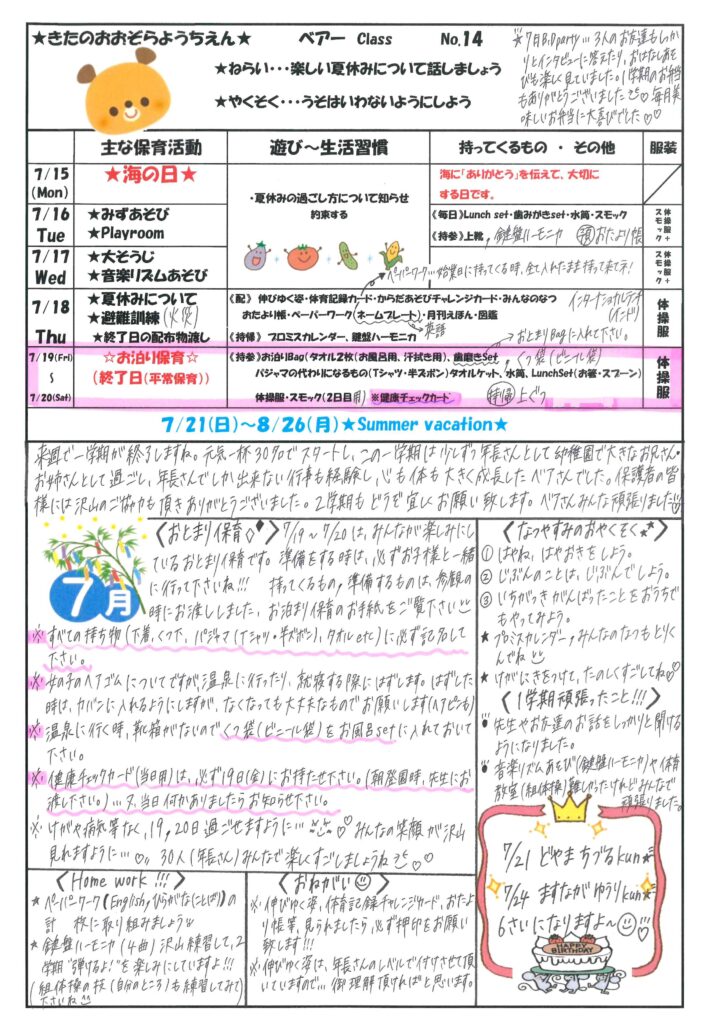 ★きたのおおぞらようちえん★
ベアー Class No.14
★ねらい・・・楽しい夏休みについて話しましょう
★やくそく・・・うそはいわないようにしよう
※7月B.D party…3人のお友達もしっか
りとインタビューに答えたり、おはなしあそ
びも楽しく見ていました。1学期のお弁当
もありがとうございました♡毎月美
味しいお弁当に大喜びでした♡♡
主な保育活動 遊び～生活習慣 持ってくるもの ・ その他 服装
7/15
(Mon)
★海の日★
・夏休みの過ごし方について知らせ
約束する
海に「ありがとう」を伝えて、大切に
する日です。
7/16
Tue
★みずあそび
★Playroom
《毎日》Lunch set・歯みがきset・水筒・スモック
《持参》上靴,鍵盤ハーモニカ おたより帳
体操服+スモック
7/17
Wed
★大そうじ
★音楽リズムあそび
体操服+スモック
ペーパーワーク…始業日に持ってくる時、全て入れたまま持って来て下さい!
7/18
Thu
★夏休みについて
★避難訓練(火災)
★終了日の配布物渡し
《配》 伸びゆく姿・体育記録カード・からだあそびチャレンジカード・みんなのなつ
おたより帳・ペーパーワーク(ネームプレート)・月刊えほん・図鑑
英語
インターナショナルランチ
(インド)
《持帰》 プロミスカレンダー、鍵盤ハーモニカ
おとまりBagに入れて下さい。
体操服
7/19(Fri)
～
7/20(Sat)
☆お泊り保育☆
(終了日(平常保育))
《持参》お泊りBag(タオル2枚(お風呂用、汗拭き用)、歯磨きSet, くつ袋(ビニール袋)
パジャマの代わりになるもの(Tシャツ・半ズボン)タオルケット、水筒、LunchSet(お箸・スプーン)
体操服・スモック(2日目用) ※健康チェックカード 持帰 上ぐつ
体操服
7/21(日)～8/26(月)★Summer vacation★
来週で一学期が終了しますね。元気一杯30名でスタートし、この一学期は少しずつ年長さんとして幼稚園で大きなお兄さん・
お姉さんとして過ごし、年長さんでしか出来ない行事も経験し、心も体も大きく成長したベアさんでした。保護者の皆
様には沢山のご協力も頂きありがとうございました。2学期もどうぞ宜しくお願い致します。ベアさんみんな頑張りました
7月
〈おとまり保育〉 7/19～7/20は、みんなが楽しみにし
ているおとまり保育です。準備をする時は、必ずお子様と一緒
に行って下さいね!!! 持ってくるもの,準備するものは、参観の
時にお渡ししました、お泊まり保育のお手紙をご覧下さい
※すべての持ち物(下着、くつ下、パジャマ(Tシャツ・半ズボン)、タオルetc)に必ず記名して
下さい。
※女の子のヘアゴムについてですが温泉に行ったり、就寝する際にはずします。はずした
時は、カバンに入れるようにしますが、なくなっても大丈夫なものでお願いします(ヘアピンも)
※温泉に行く時、靴箱がないのでくつ袋(ビニール袋)をお風呂setに入れておいて
下さい。
※健康チェックカード(当日用)は、必ず19日(金)にお持たせ下さい。(朝登園時、先生にお
渡し下さい。)…又、当日何かありましたらお知らせ下さい。
※けがや病気等なく、19,20日過ごせますように…♡みんなの笑顔が沢山
見れますように…♡。30人(年長さん)みんなで楽しくすごしましょうね♡♡
〈なつやすみのおやくそく★〉
①はやね、はやおきをしよう。
②じぶんのことは、じぶんでしよう。
③いちがっきがんばったことをおうちで
もやってみよう。
★プロミスカレンダー,みんなのなつもとりく
んでね
★けがにきをつけて、たのしくすごしてね♡
〈1学期頑張ったこと!!!〉
先生やお友達のお話をしっかりと聞ける
ようになりました。
音楽リズムあそび(鍵盤ハーモニカ)や体育
教室(組体操)難しかったけれどみんなで
頑張りました。
7/21 どやまちづるkun★
7/24 ますながゆうりkun★
6さいになりますよ～!!
HAPPY
BIRTHDAY
〈Home work!!!〉
★ペーパーワーク(English,ひらがな(ことば))の
計 枚に取り組みましょう
★鍵盤ハーモニカ(4曲)沢山練習して、2
学期"弾けるよ!"を楽しみにしていますよ!!!
(組体操の技(自分のところ)も練習してみて
下さいね)
〈おねがい〉
※伸びゆく姿、体育記録チャレンジカード、おたよ
り帳等、見られましたら必ず押印をお願い
致します!!!
※伸びゆく姿は、年長さんのレベルで付けさせて頂
いていますので…御理解頂ければと思います。